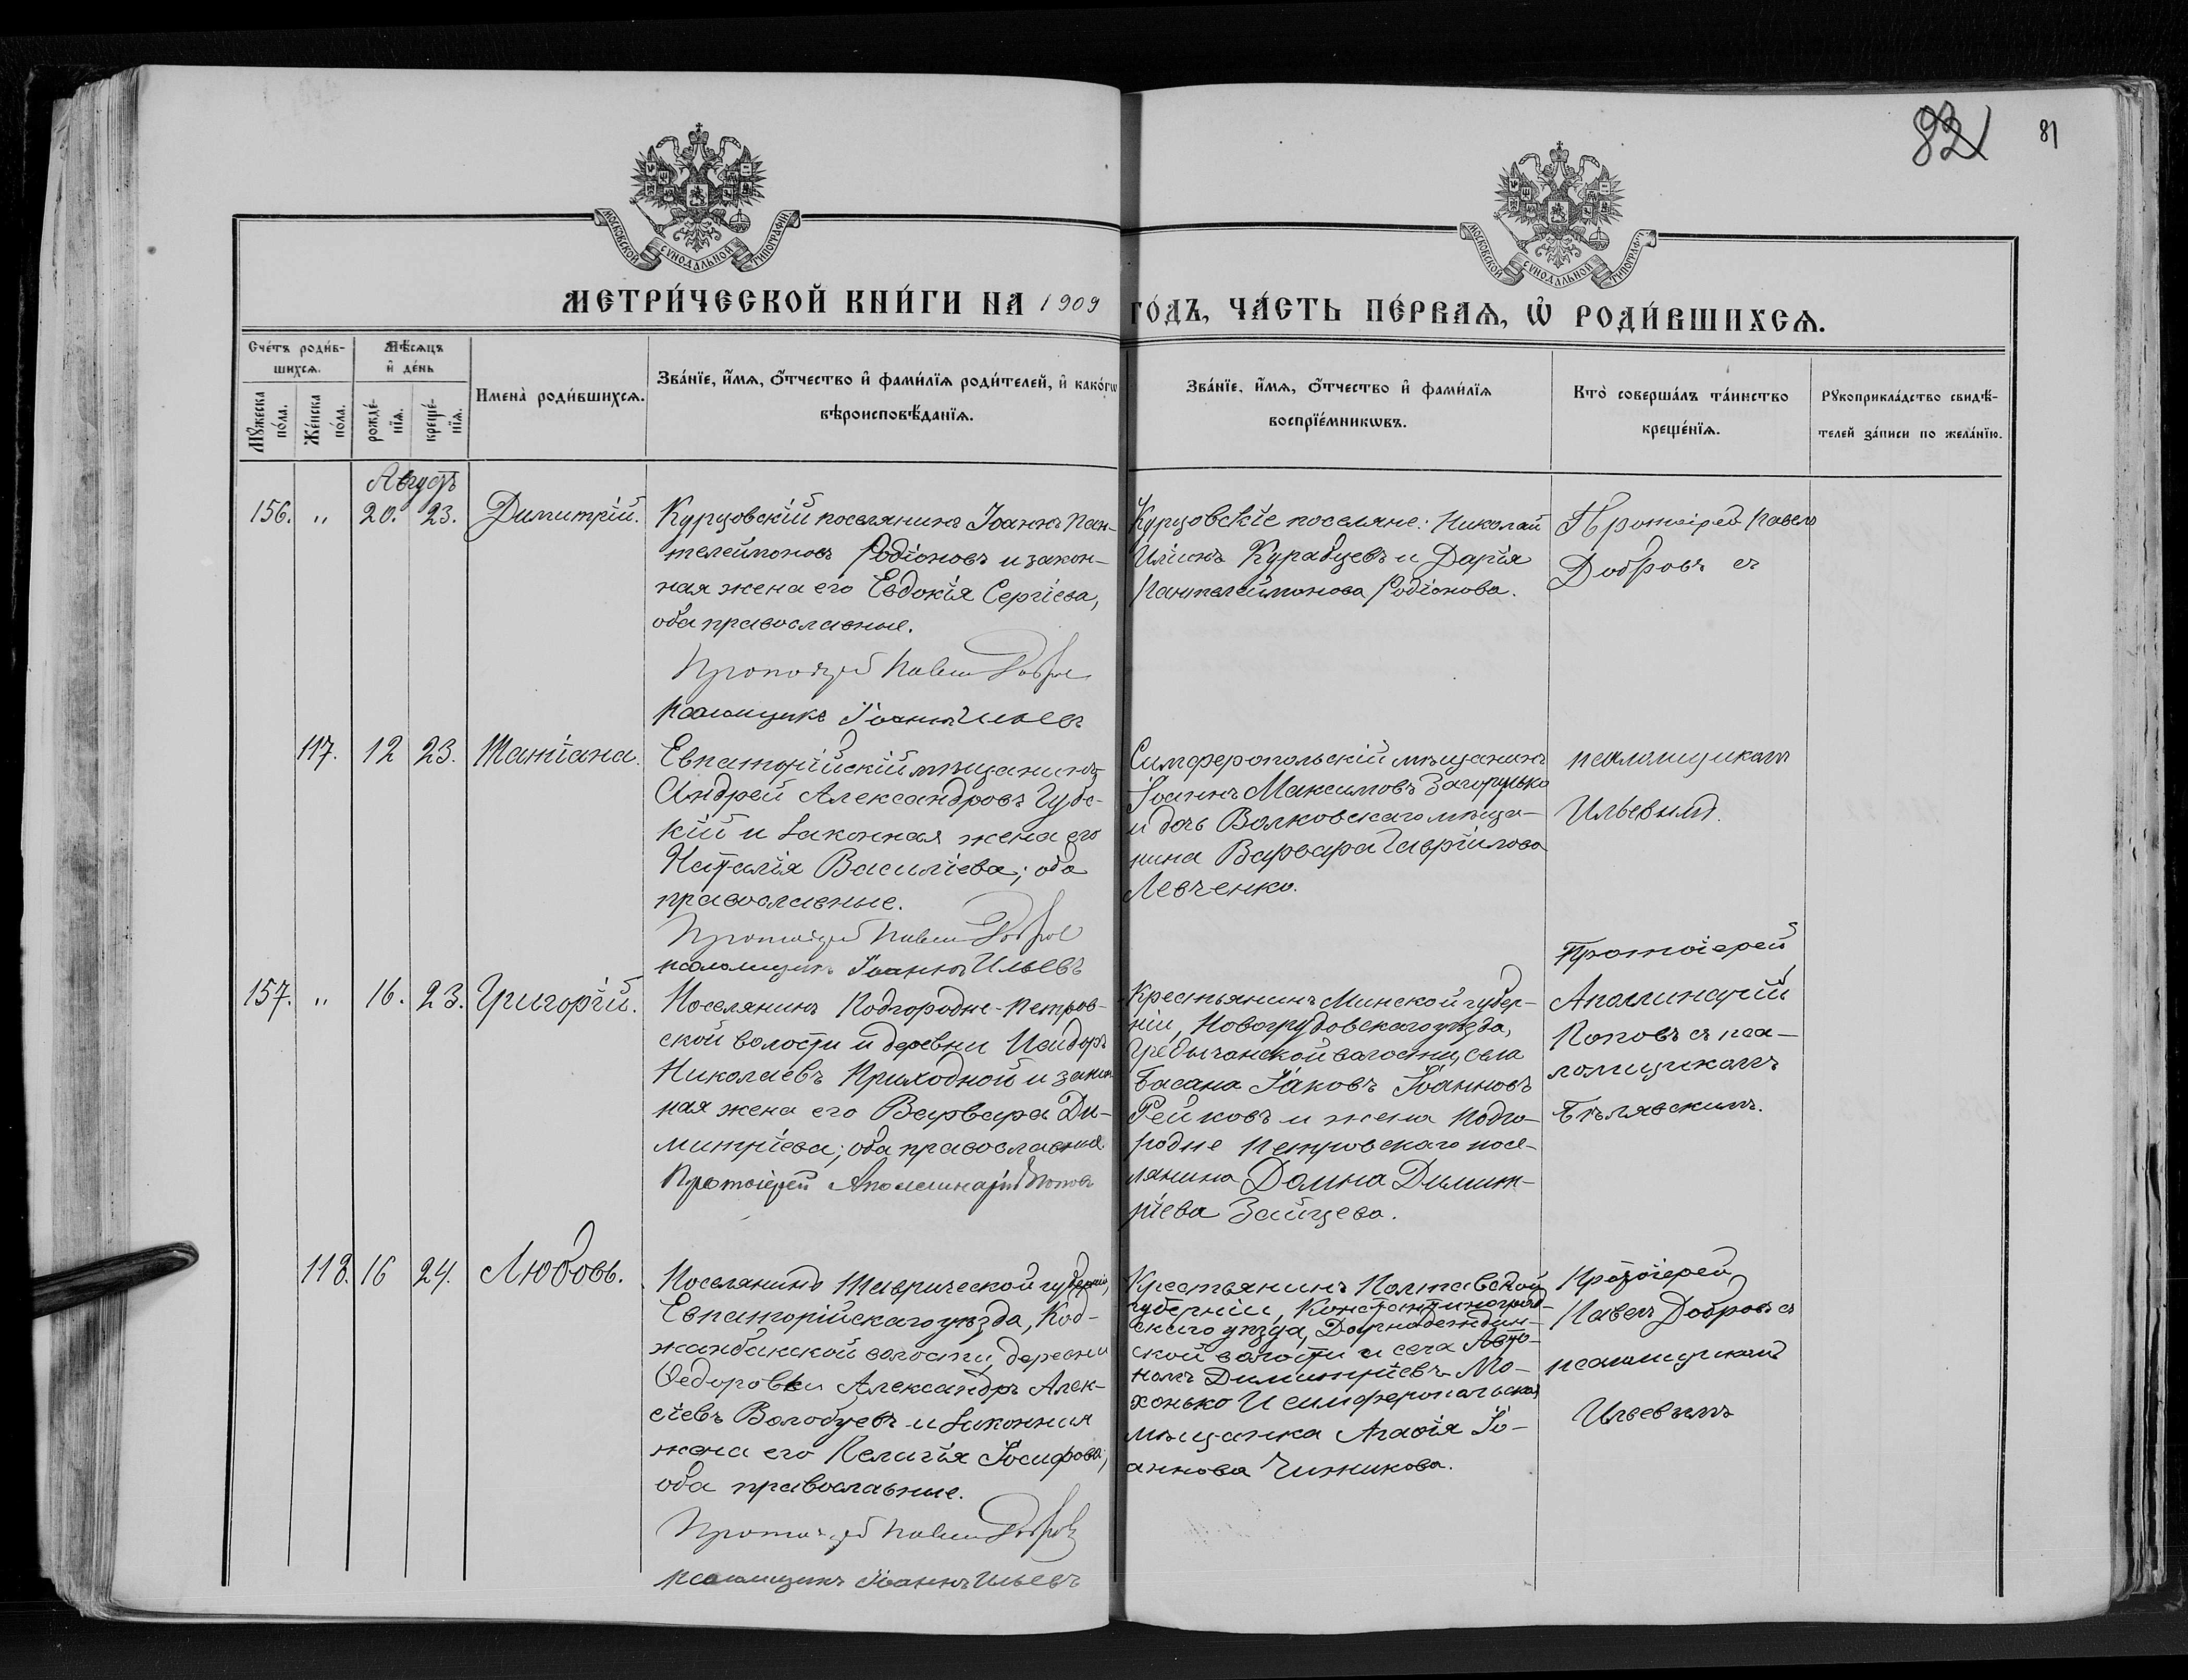 82
81
МОСКОВСКОЙ СѴНОДАЛЬНОЙ ТИПОГРАФІИ
МОСКОВСКОЙ СѴНОДАЛЬНОЙ ТИПОГРАФІИ
МЕТРИ́ЧЕСКОЙ КНИ́ГИ НА 1909 ГО́ДЪ, ЧА́СТЬ ПЕ́РВАѦ, Ѡ҆ РОДИ́ВШИХСѦ.
Сче́тъ роди́в-
шихсѧ.
Мꙋ́жеска по́ла.
Же́нска по́ла.
Мѣ́сѧцъ
и҆ де́нь
рожде́-
нїѧ.
креще́-
нїѧ.
Имена̀ роди́вшихсѧ.
Зва́нїе, и҆́мѧ, ѻ҆́тчество и҆ фами́лїѧ роди́телей, и҆ како́гѡ
вѣроисповѣ́данїѧ.
Зва́нїе, и҆́мѧ, ѻ҆́тчество и҆ фами́лїѧ
воспрїе́мникѡвъ.
Кто̀ соверша́лъ та́инство
креще́нїѧ.
Рꙋкоприкла́дство свидѣ́-
телей за́писи по жела́нїю.
Августъ
156. " 20. 23. Димитрій.
Курцовскій поселянинъ Іоаннъ Пан-
телеймоновъ Родіоновъ и закон-
ная жена его Евдокія Сергіева,
оба православные.
Протоіерей Павелъ Добровъ
псаломщикъ Іоаннъ Ильевъ
Курцовскіе поселяне: Николай
Ильинъ Курабцевъ и Дарія
Пантелеймонова Родіонова.
Протоіерей Павелъ
Добровъ съ
117. 12 23. Татіана.
Евпаторійскій мѣщанинъ
Андрей Александровъ Губс-
кій и законная жена его
Наталія Василіева; оба
православные.
Протоіерей Павелъ Добровъ
псаломщикъ Іоаннъ Ильевъ
Симферопольскій мѣщанинъ
Іоаннъ Максимовъ Загорулько
и дочь Волковскаго мѣща-
нина Варвара Гавріилова
Левченко.
псаломщикомъ
Ильевымъ.
157. " 16. 23. Григорій.
Поселянинъ Подгородне-Петров-
ской волости и деревни Исидоръ
Николаевъ Приходной и закон
ная жена его Варвара Ди-
митріева; оба православные.
Протоіерей Аполлинарій Поповъ
Крестьянинъ Минской губер-
ніи, Новогрудовскаго уѣзда,
волости, села
Басана Іаковъ Іоанновъ
Рейковъ и жена Подго-
родне Петровскаго посе-
лянина Домна Димит-
ріева Зайцева.
Протоіерей
Аполлинарій
Поповъ съ пса-
ломщикомъ
Бѣлявскимъ.
118. 16 24. Любовь.
Поселянинъ Таврической губерніи,
Евпаторійскаго уѣзда, Код-
жанбакской волости, деревни
Ѳедоровки Александръ Алек-
сіевъ Волобуевъ и законная
жена его Пелагія Іосифова;
оба православные.
Протоіерей Павелъ Добровъ
псаломщикъ Іоаннъ Ильевъ
Крестьянинъ Полтавской
губерніи, Константиноград-
скаго уѣзда, Дарнадеждин-
ской волости и села Авто-
номъ Димитріевъ Мо-
хонько и симферопольская
мѣщанка Агаѳія Іо-
аннова Чижикова.
Протоіерей
Павелъ Добровъ съ
псаломщикомъ
Ильевымъ